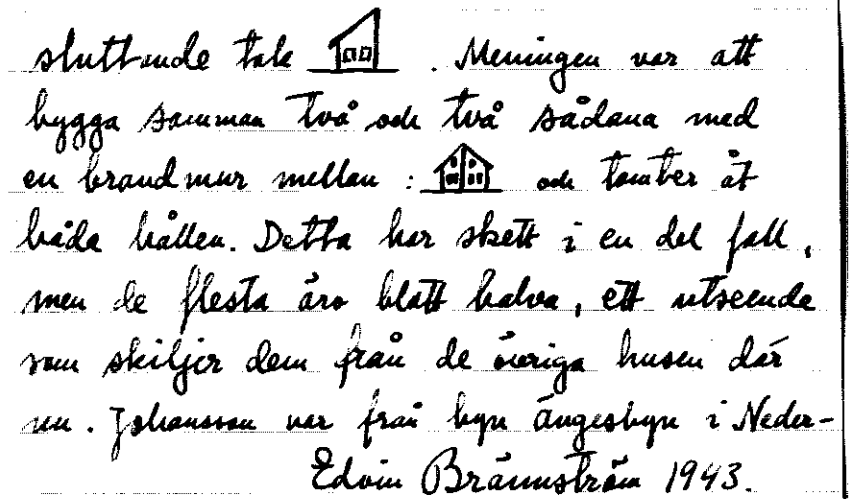 sluttande tak . Meningen var att
bygga samman två och två sådana med
en brandmur mellan : och tomter åt
båda hållen. Detta har skett i en del fall,
men de flesta äro blott halva, ett utseende
som skiljer dem från de övriga husen där
nu. Johansson var från byn Ängesbyn i Neder-
Edvin Brännström 1943.